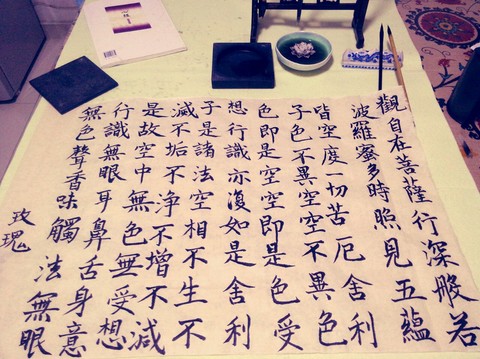 觀自在菩薩行深般若
波羅蜜多時照見五蘊
皆空度一切苦厄舍利
子色不異空空不異色
色即是空空即是色受
想行識亦復如是舍利
子是諸法空相不生不
滅不垢不淨不增不減
是故空中無色無受想
行識無眼耳鼻舌身意
無色聲香味觸法無眼
玫瑰